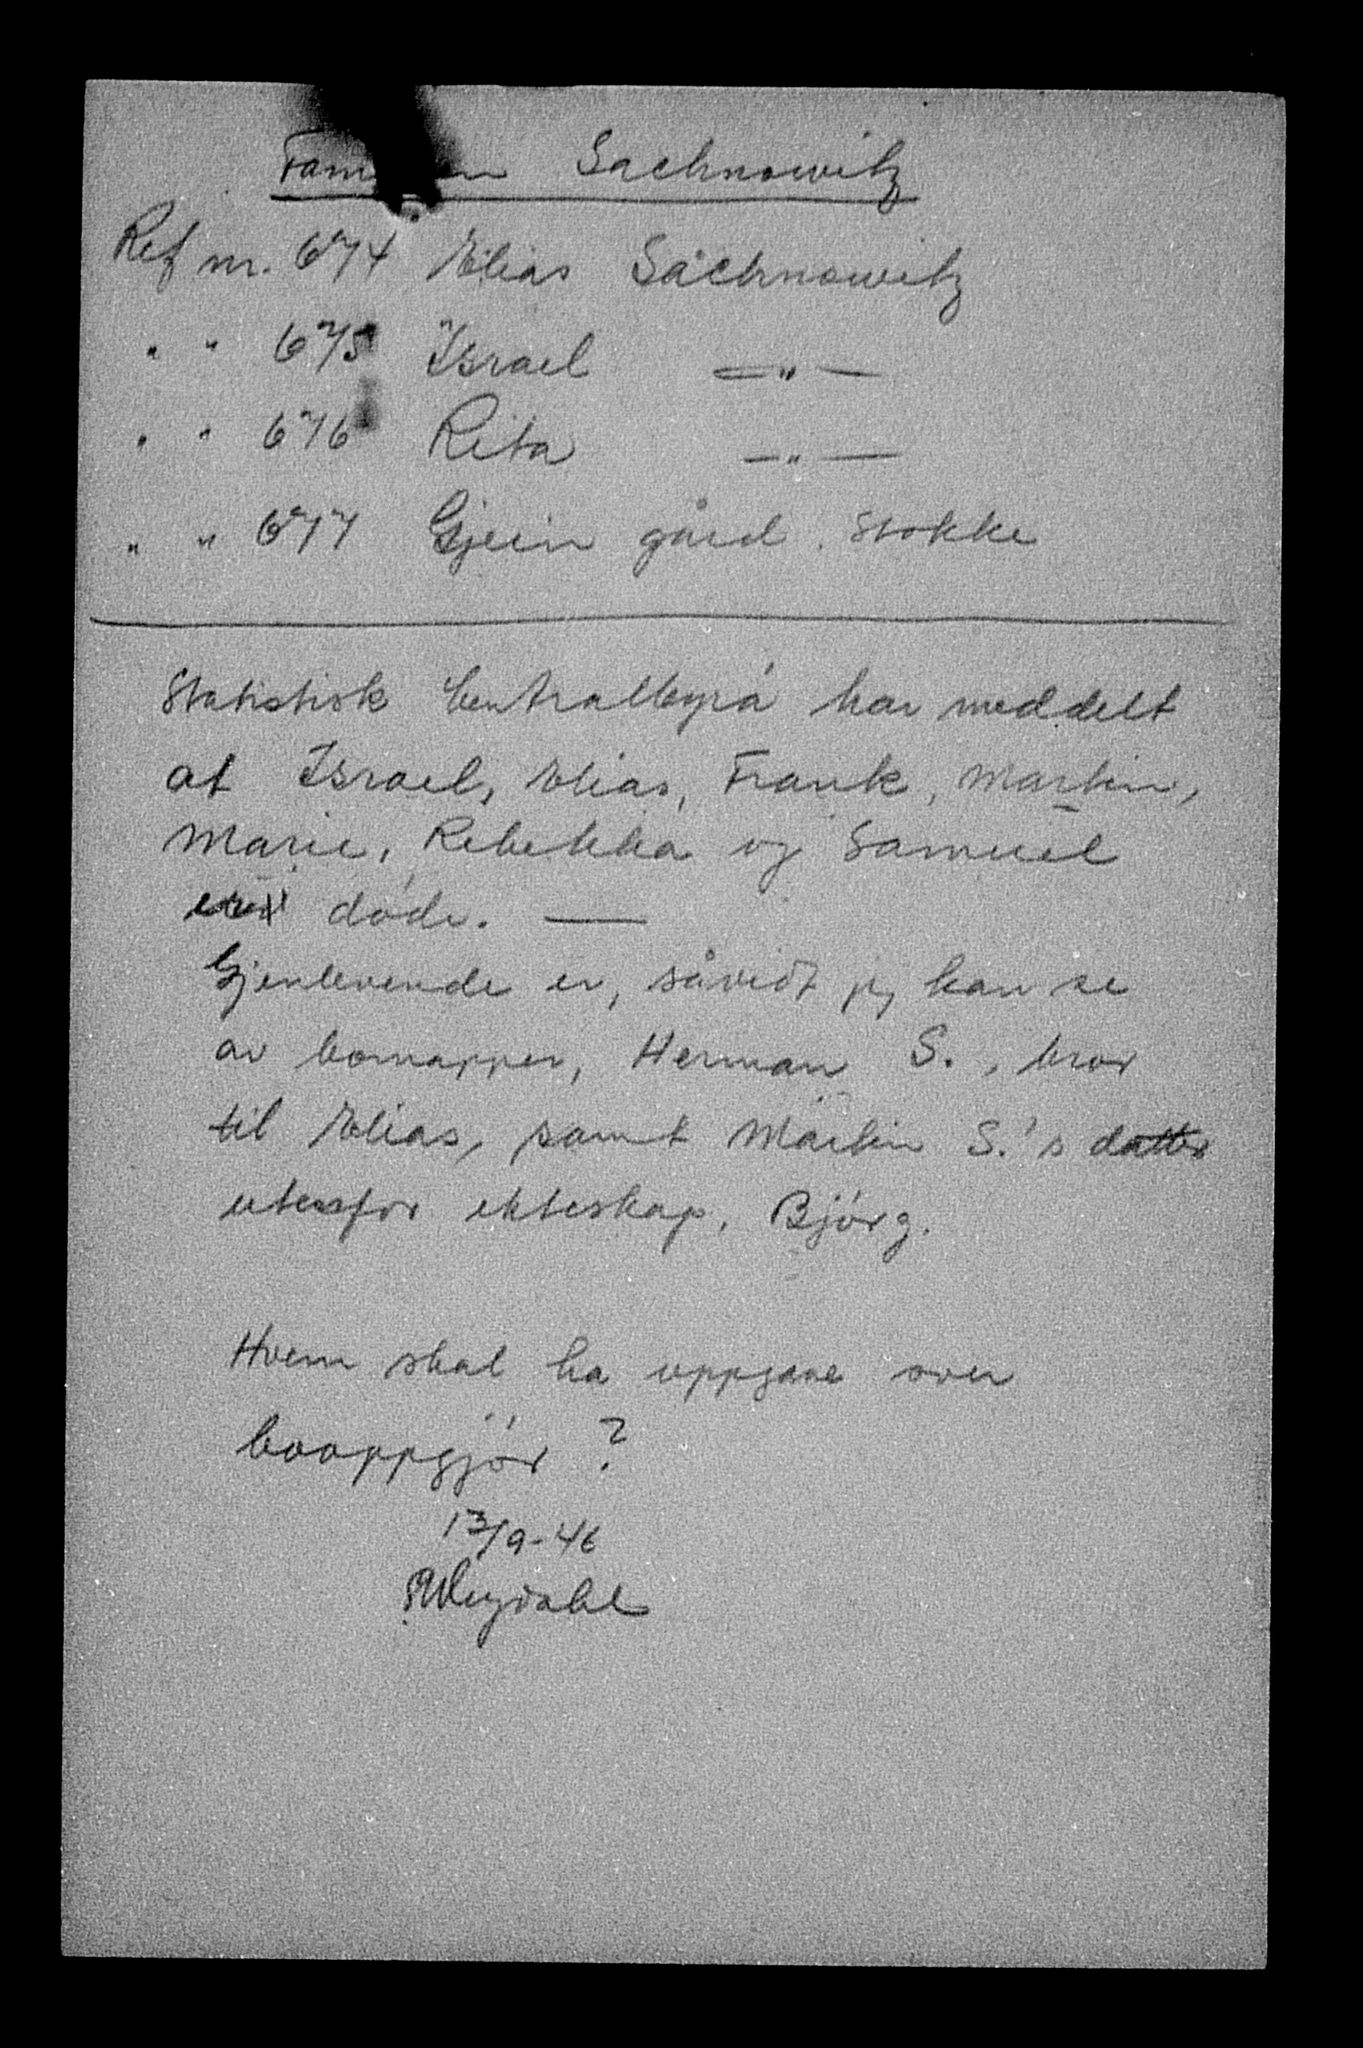 Familien Sachnowitz
Ref nr. 674 Elias Sachnowitz
" " 675 Israel — " —
" " 676 Rita — " —
" " 677 Gjein gård. Stokke
Statistisk Centralbyrå har meddelt
at Israel, Elias, Frank, Martin,
Marie, Rebekka og Samuel
er døde. —
Gjenlevende er, såvidt jeg kan se
av bomapper, Herman S., bror
til Elias, samt Martin S.'s datter
utenfor ekteskap, Bjørg.
Hvem skal ha oppgave over
booppgjør?
13/9-46